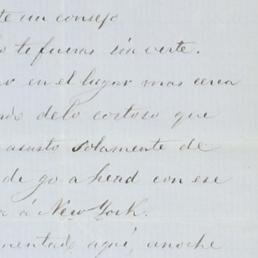 te un consejo
te fueras sin verte.
en el lugar mas cerca
delo costoso que
asusto solamente de
de go a head con ese
á New York.
mentado aquí, anoche